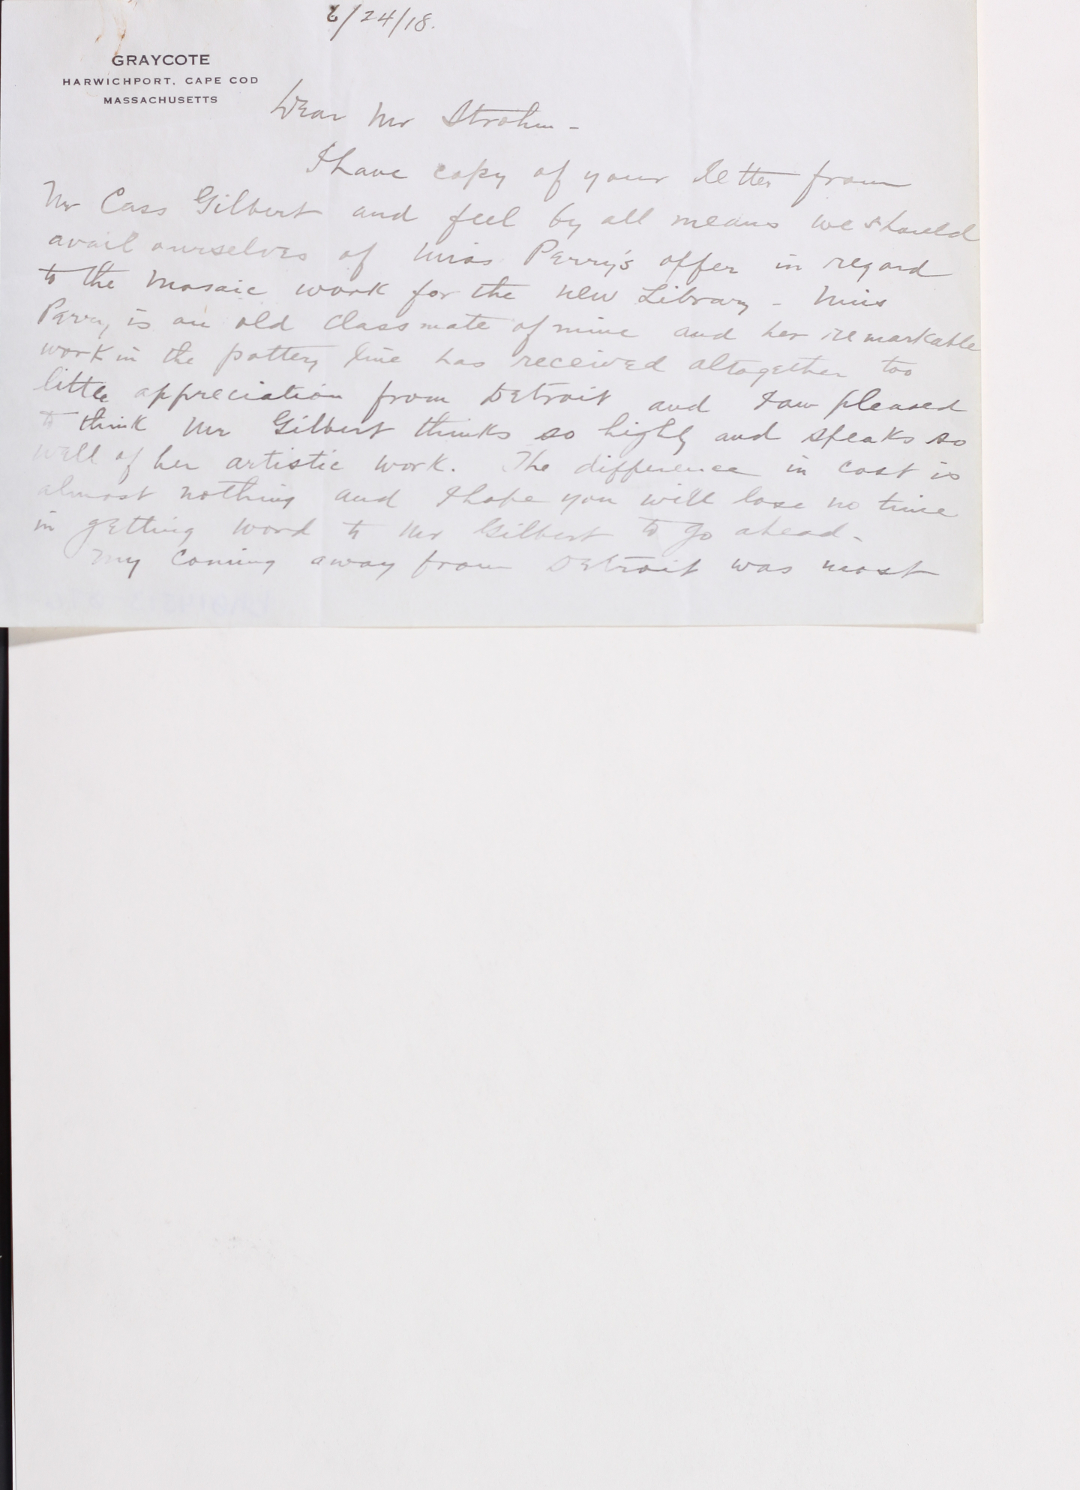 6/24/18.
GRAYCOTE
HARWICHPORT, CAPE COD
MASSACHUSETTS
Dear Mr Strohm -
I have copy of your letter from
Mr Cass Gilbert and feel by all means we should
avail ourselves of Miss Perry's offer in regard
to the Mosaic work for the new Library - Miss
Perry is an old classmate of mine and her remarkable
work in the pottery line has received altogether too
little appreciation from Detroit and I am pleased
to think Mr Gilbert thinks so highly and speaks so
well of her artistic work. The difference in cost is
almost nothing and I hope you will lose no time
in getting word to Mr Gilbert to go ahead -
My coming away from Detroit was most